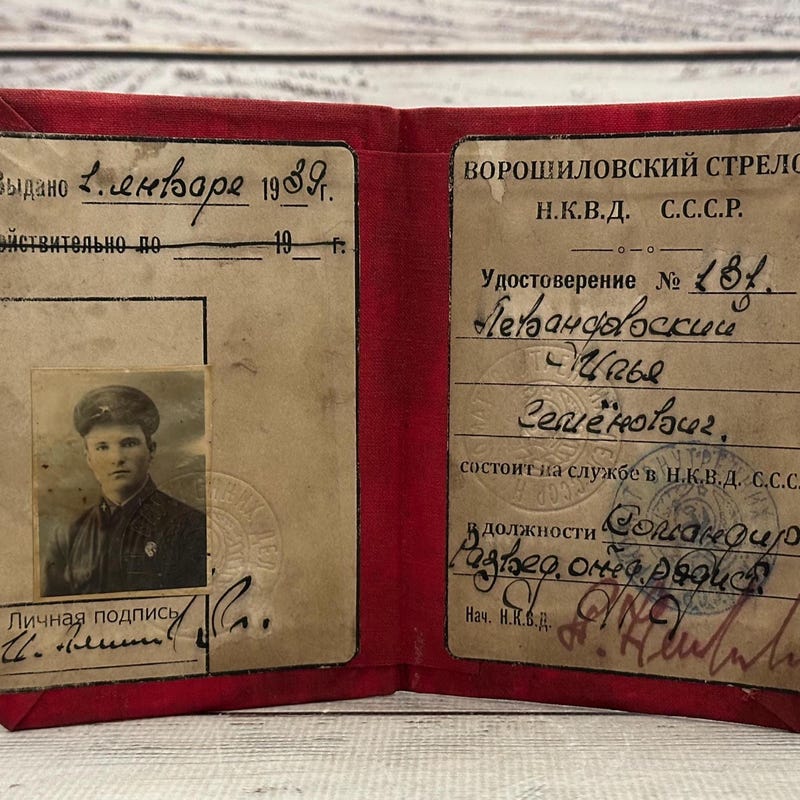 Выдано 1. января 1939г.
ействительно по 19 г.
Личная подпись
ВОРОШИЛОВСКИЙ СТРЕЛО
Н.К.В.Д. С.С.С.Р.
Удостоверение № 131.
Левандовский
Илья
Семёнович.
состоит на службе в Н.К.В.Д. С.С.С.
в должности Командир
Развед. отд. радист.
Нач. Н.К.В.Д.